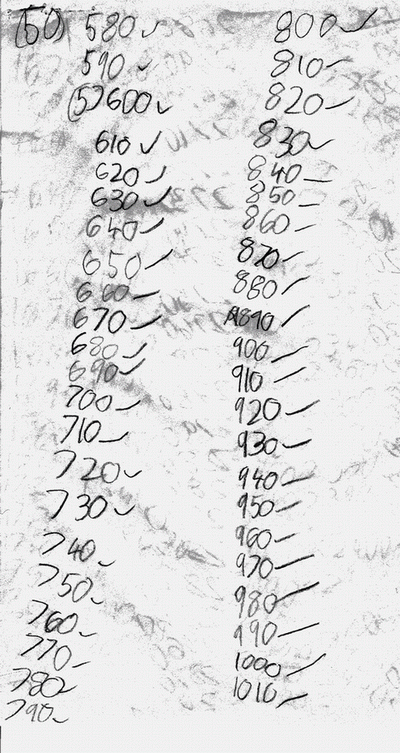 (50) 580 ✓
590 ✓
(5)600 ✓
610 ✓
620 ✓
630 ✓
640 ✓
650 ✓
660 ✓
670 ✓
680 ✓
690 ✓
700 ✓
710 ✓
720 ✓
730 ✓
740 ✓
750 ✓
760 ✓
770 ✓
780 ✓
790 ✓
800 ✓
810 ✓
820 ✓
830 ✓
840 ✓
850 ✓
860 ✓
870 ✓
880 ✓
890 ✓
900 ✓
910 ✓
920 ✓
930 ✓
940 ✓
950 ✓
960 ✓
970 ✓
980 ✓
990 ✓
1000 ✓
1010 ✓